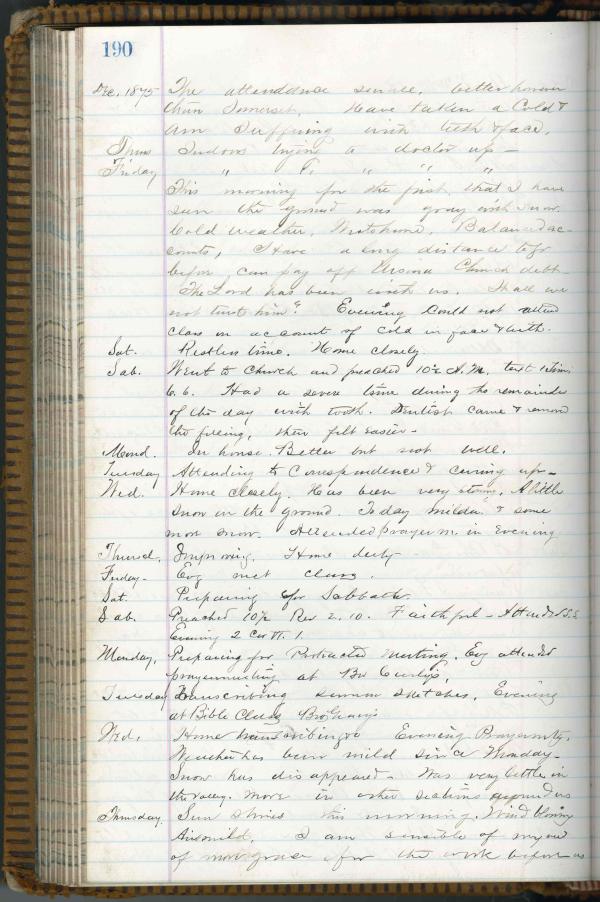 190
Dec. 1875 The attendance small, better however
than Somerset. Have taken a Cold &
am suffering with teeth & face.
Thurs Indoors trying to doctor up –
Friday " " " " "
This morning for the first that I have
seen the ground was gray with snow.
Cold weather. Kept home. Balanced ac-
counts, I have a long distance to go
before can pay off Church debt
The Lord has been with us. Shall we
not trust him? Evening Could not attend
class on account of cold in face & teeth.
Sat. Restless time. Home closely.
Sab. Went to Church and preached 10½ A.M. text 1 Tim
6.6. Had a severe time during the remainder
of the day with tooth. Dentist came & removed
the filling, then felt easier –
Mond. In house. Better but not well.
Tuesday Attending to Correspondence & curing up –
Wed. Home closely. Has been very stormy. A little
snow on the ground. Today milder & some
more snow. Attended Prayer m. in Evening
Thursd. Improving. Home duty
Friday – Evg met class.
Sat. Preparing for Sabbath.
Sab. Preached 10½ Rev 2.10. Faithful – Attended S.S
Evening 2 Cor 1
Monday. Preparing for Protracted Meeting. Evg attended
prayermeeting at Bro Curtis,
Tuesday Transcribing sermon sketches. Evening
at Bible Class Bro
Wed. Home transcribing Evening Prayermtg.
Weather has been mild since Monday –
Snow has disappeared – Was very little in
the valley. More in other sections
Thursday. Sun shines this morning. Wind blowing
Air mild, I am sensible of my need
of more grace for the work before us